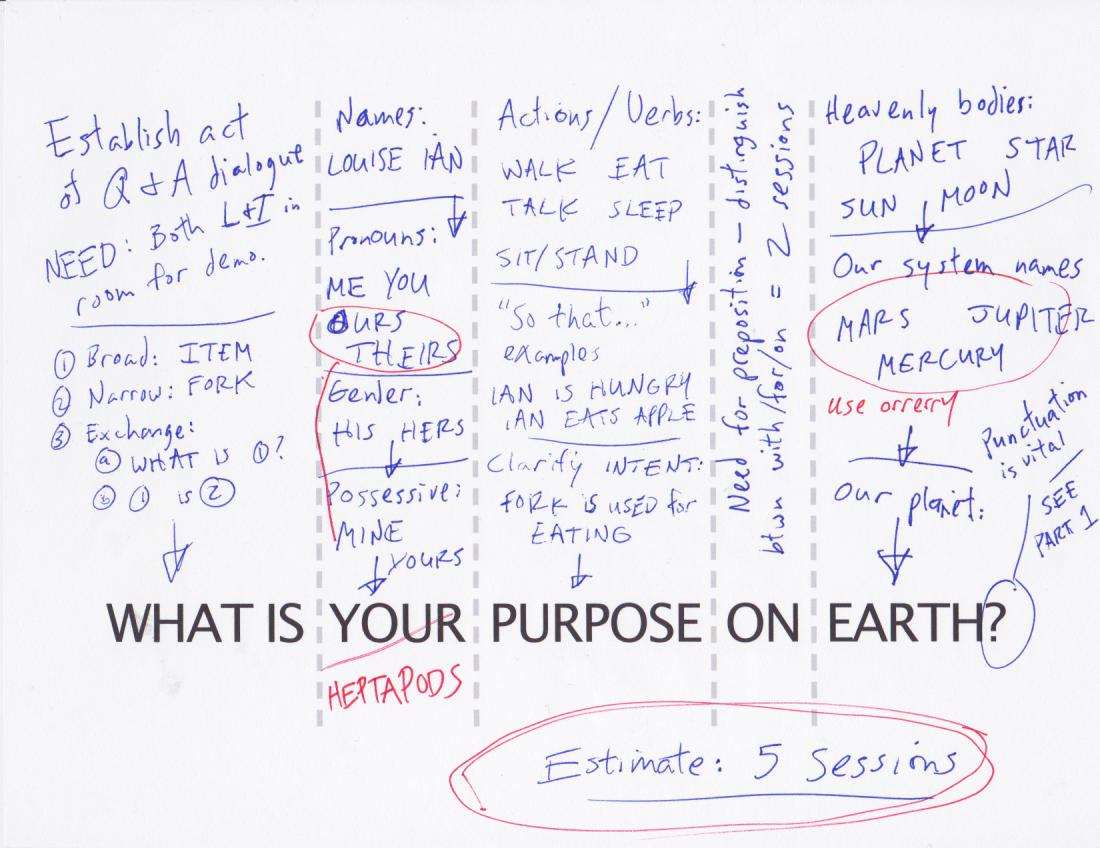 Establish act
of Q & A dialogue
NEED: Both L&I in
room for demo.
① Broad: ITEM
② Narrow: FORK
③ Exchange:
ⓐ WHAT IS ①?
ⓑ ① is ②
Names:
LOUISE IAN
Pronouns:
ME YOU
OURS
THEIRS
Gender:
HIS HERS
Possessive:
MINE
YOURS
Actions/Verbs:
WALK EAT
TALK SLEEP
SIT/STAND
"So that..."
examples
IAN IS HUNGRY
IAN EATS APPLE
Clarify INTENT:
FORK IS USED for
EATING
Need for preposition – distinguish
btwn with/for/on = 2 sessions
Heavenly bodies:
PLANET STAR
SUN MOON
Our system names
MARS JUPITER
MERCURY
use orrerry
Our planet:
Punctuation
is vital
SEE
PART 1
WHAT IS YOUR PURPOSE ON EARTH?
HEPTAPODS
Estimate: 5 Sessions